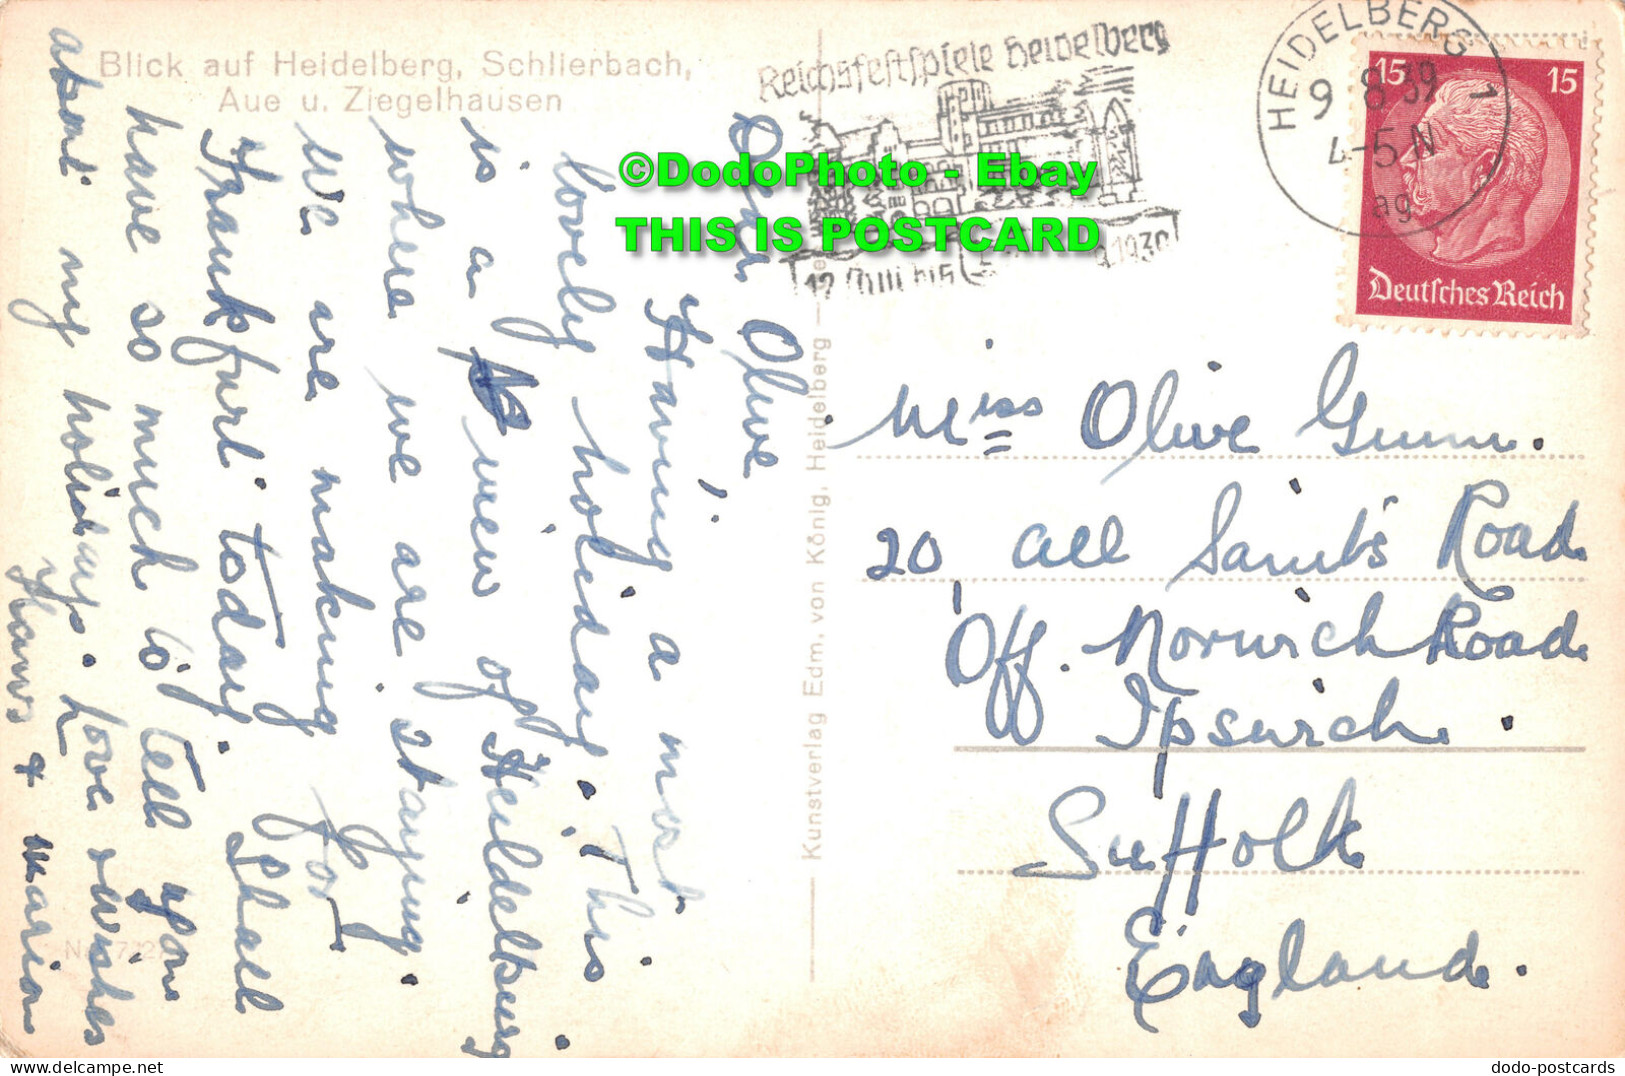 Blick auf Heidelberg, Schlierbach,
Aue u. Ziegelhausen
Dear Olive
Having a most
lovely holiday. This
is a view of Heidelburg
where we are staying.
We are making for
Frankfurt today. Shall
have so much to tell you
about my holidays. Love & wishes
Hans & Marion
Kunstverlag Edm. von König, Heidelberg
Reichsfestspiele Heidelberg
HEIDELBERG 1
9 8 39
4-5 N
ag
15 15
Deutsches Reich
©DodoPhoto - Ebay
THIS IS POSTCARD
Miss Olive Gunn.
20, All Saint's Road
Off. Norwich Road
Ipswich.
Suffolk
England.
dodo-postcards